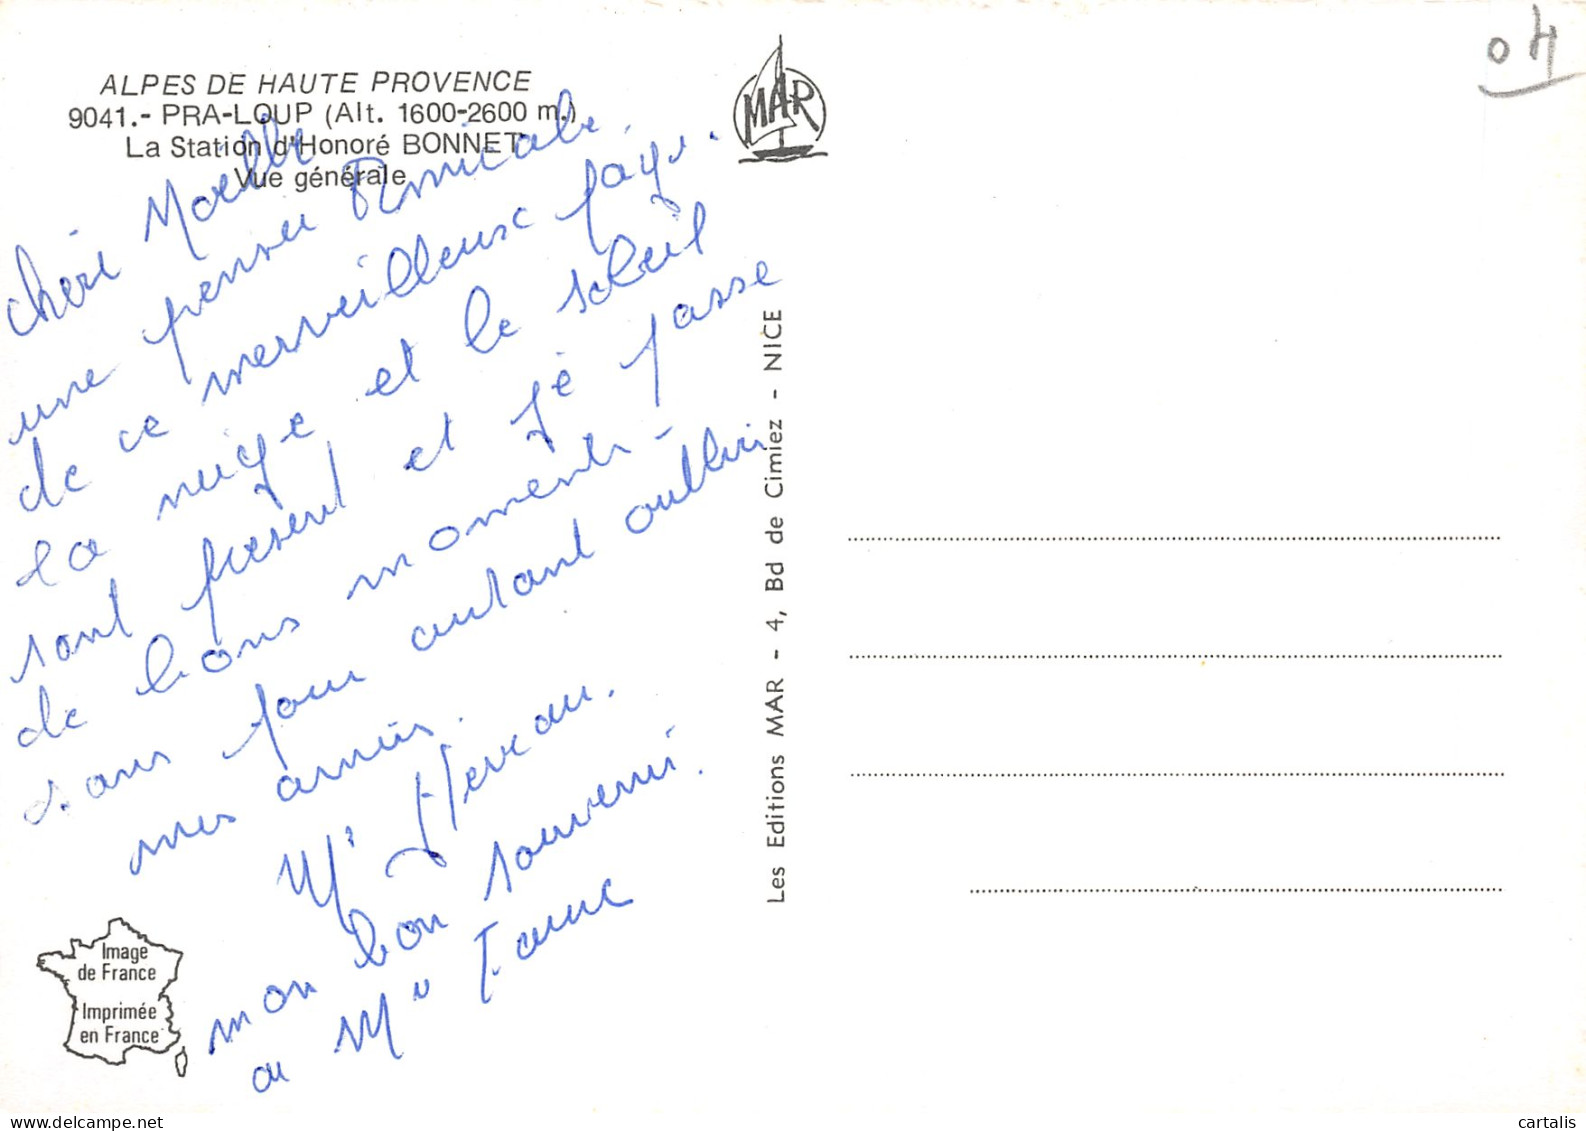 ALPES DE HAUTE PROVENCE
9041.- PRA-LOUP (Alt. 1600-2600 m.)
La Station d'Honoré BONNET
Vue générale
MAR
04
chère
une pensée Amicale
de ce merveilleux pays.
la neige et le soleil
sont présent et je passe
de bons moments -
sans pour autant oublier
mes amies.
mon bon souvenir.
au
Les Editions MAR - 4, Bd de Cimiez - NICE
Image
de France
Imprimée
en France
cartalis